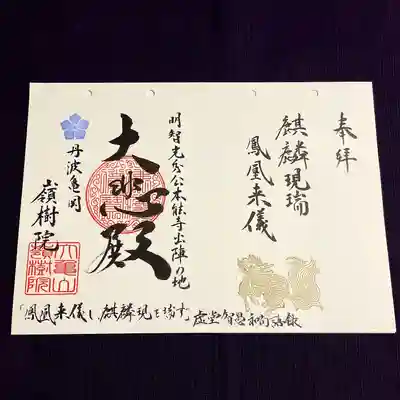 奉拝
麒麟現瑞
鳳凰来儀
明智光秀公本能寺出陣の地
大悲殿
丹波亀岡
嶺樹院
大亀山
嶺樹院
「鳳凰来儀し、麒麟現を瑞す」虚堂智愚和尚語録